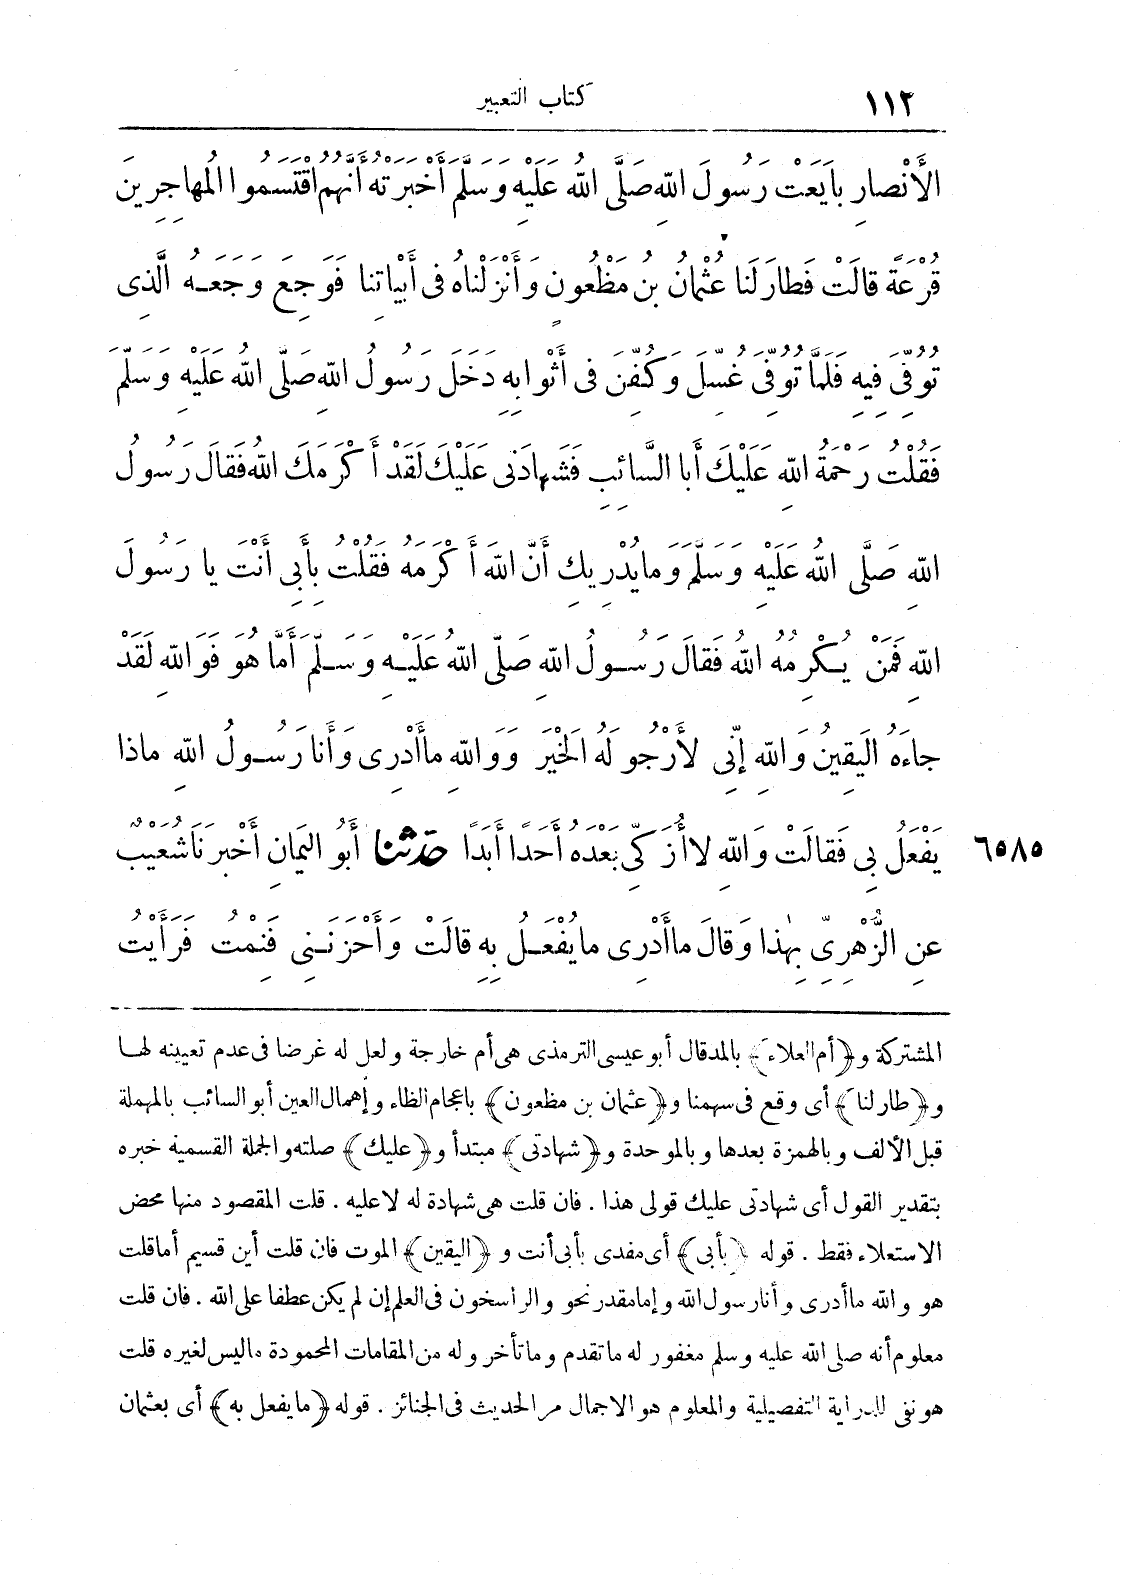 ١١٢
كتاب التعبير
الأَنْصارِ بايَعَت رَسُولَ اللهِ صَلَّى اللهُ عَلَيْهِ وسلم أَخْبَرَتْه أَنَّهم اقْتَسَموا المُهاجِرِينَ
قُرْعَةً قالَتْ فَطارَ لَنا عُثْمانُ بنُ مَظْعُونٍ وَأَنْزَلْناهُ فى أَبْياتِنا فَوَجِعَ وَجَعَهُ الَّذِى
تُوُفِّىَ فِيهِ فَلَمَّا تُوُفِّىَ غُسِّلَ وَكُفِّنَ فى أَثْوابِهِ دَخَلَ رَسُولُ اللهِ صَلَّى اللهُ عَلَيْهِ وَسَلَّمَ
فَقُلْتُ رَحْمَةُ اللهِ عَلَيْكَ أَبا السَّائِبِ فَشَهادَتِى عَلَيْكَ لَقَدْ أَكْرَمَكَ اللهُ فقالَ رَسُولُ
اللهِ صَلَّى اللهُ عَلَيْهِ وَسَلَّمَ وَما يُدْرِيكِ أَنَّ اللهَ أَكْرَمَهُ فَقُلْتُ بِأَبِى أَنْتَ يا رَسُولَ
اللهِ فَمَنْ يُكْرِمُهُ اللهُ فَقالَ رَسُولُ اللهِ صَلَّى اللهُ عَلَيْهِ وَسَلَّمَ أَمَّا هُوَ فَوَاللهِ لَقَدْ
جاءَهُ اليَقِينُ وَاللهِ إِنِّى لأَرْجُو لَهُ الخَيْرَ وَوَاللهِ ماأَدْرِى وَأَنا رَسُولُ اللهِ ماذا
يَفْعَلُ بِى فَقالَتْ وَاللهِ لا أُزَكِّى بَعْدَهُ أَحَدًا أَبَدًا حدثنا أَبُو اليَمانِ أَخْبَرَنا شُعَيْبٌ
٦٥٨٥
عنِ الزُّهْرِىِّ بِهٰذا وَقالَ ماأَدْرِى ما يُفْعَلُ بِهِ قالَتْ وَأَحْزَنَنِى فَنِمْتُ فَرَأَيْتُ
المشتركة و﴿أم العلاء﴾ بالمد قال أبو عيسى الترمذى هى أم خارجة ولعل له غرضا فى عدم تعيينه لها
و﴿طار لنا﴾ أى وقع فى سهمنا و﴿عثمان بن مظعون﴾ باعجام الظاء وإهمال العين أبو السائب بالمهملة
قبل الألف وبالهمزة بعدها وبالموحدة و﴿شهادتى﴾ مبتدأ و﴿عليك﴾ صلته والجملة القسمية خبره
بتقدير القول أى شهادتى عليك قولى هذا . فان قلت هى شهادة له لا عليه . قلت المقصود منها محض
الاستعلاء فقط . قوله ﴿بأبى﴾ أى مفدى بأبى أنت و ﴿اليقين﴾ الموت فان قلت أين قسيم أما قلت
هو والله ما أدرى وأنا رسول الله وإما مقدر نحو والراسخون فى العلم إن لم يكن عطفا على الله . فان قلت
معلوم أنه صلى الله عليه وسلم مغفور له ما تقدم وما تأخر وله من المقامات المحمودة ما ليس لغيره قلت
هو نفى للدراية التفصيلية والمعلوم هو الاجمال مر الحديث فى الجنائز . قوله ﴿ما يفعل به﴾ أى بعثمان